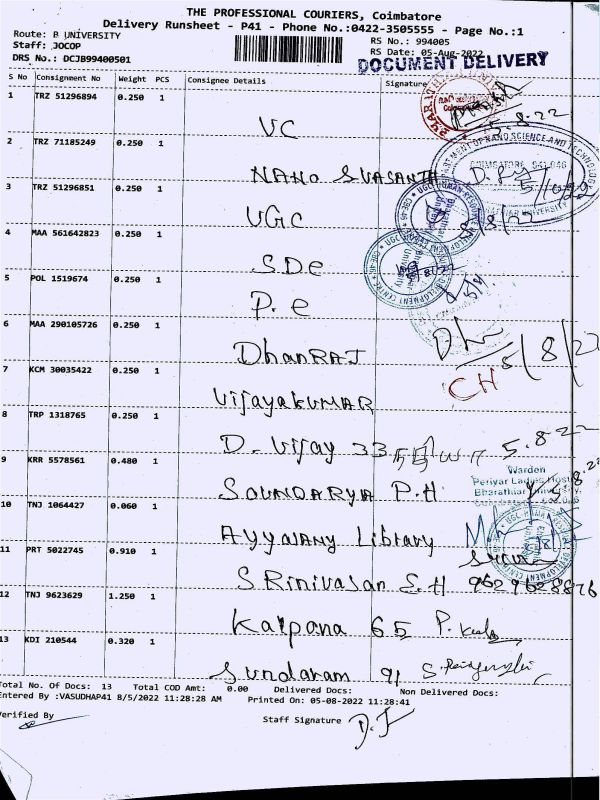 THE PROFESSIONAL COURIERS, Coimbatore
Delivery Runsheet - P41 - Phone No.:0422-3505555 - Page No.:1
Route: B UNIVERSITY
RS No.: 994005
Staff: JOCOP
RS Date: 05-Aug-2022
DRS No.: DCJB99400501
DOCUMENT DELIVERY
S No Consignment No Weight PCS Consignee Details Signature
1 TRZ 51296894 0.250 1
VC
5.8.22
2 TRZ 71185249 0.250 1
NANO SVASANTH
3 TRZ 51296851 0.250 1
UGC
4 MAA 561642823 0.250 1
SDe
5 POL 1519674 0.250 1
P.e
6 MAA 290105726 0.250 1
DhanRAJ
7 KCM 30035422 0.250 1
CH
VijayaKUMAR
8 TRP 1318765 0.250 1
D. Vijay 33
5.8.22
9 KRR 5578561 0.480 1
SOUNDARYA P.H
Warden
Periyar Ladies Hostel
Bharathiar University,
10 TNJ 1064427 0.060 1
AyyaNANy Library
11 PRT 5022745 0.910 1
SRinivasan S.H 9629628876
12 TNJ 9623629 1.250 1
Kalpana 65
13 KDI 210544 0.320 1
Sundaram 91
Total No. Of Docs: 13 Total COD Amt: 0.00 Delivered Docs: Non Delivered Docs:
Entered By :VASUDHAP41 8/5/2022 11:28:28 AM Printed On: 05-08-2022 11:28:41
Verified By
Staff Signature